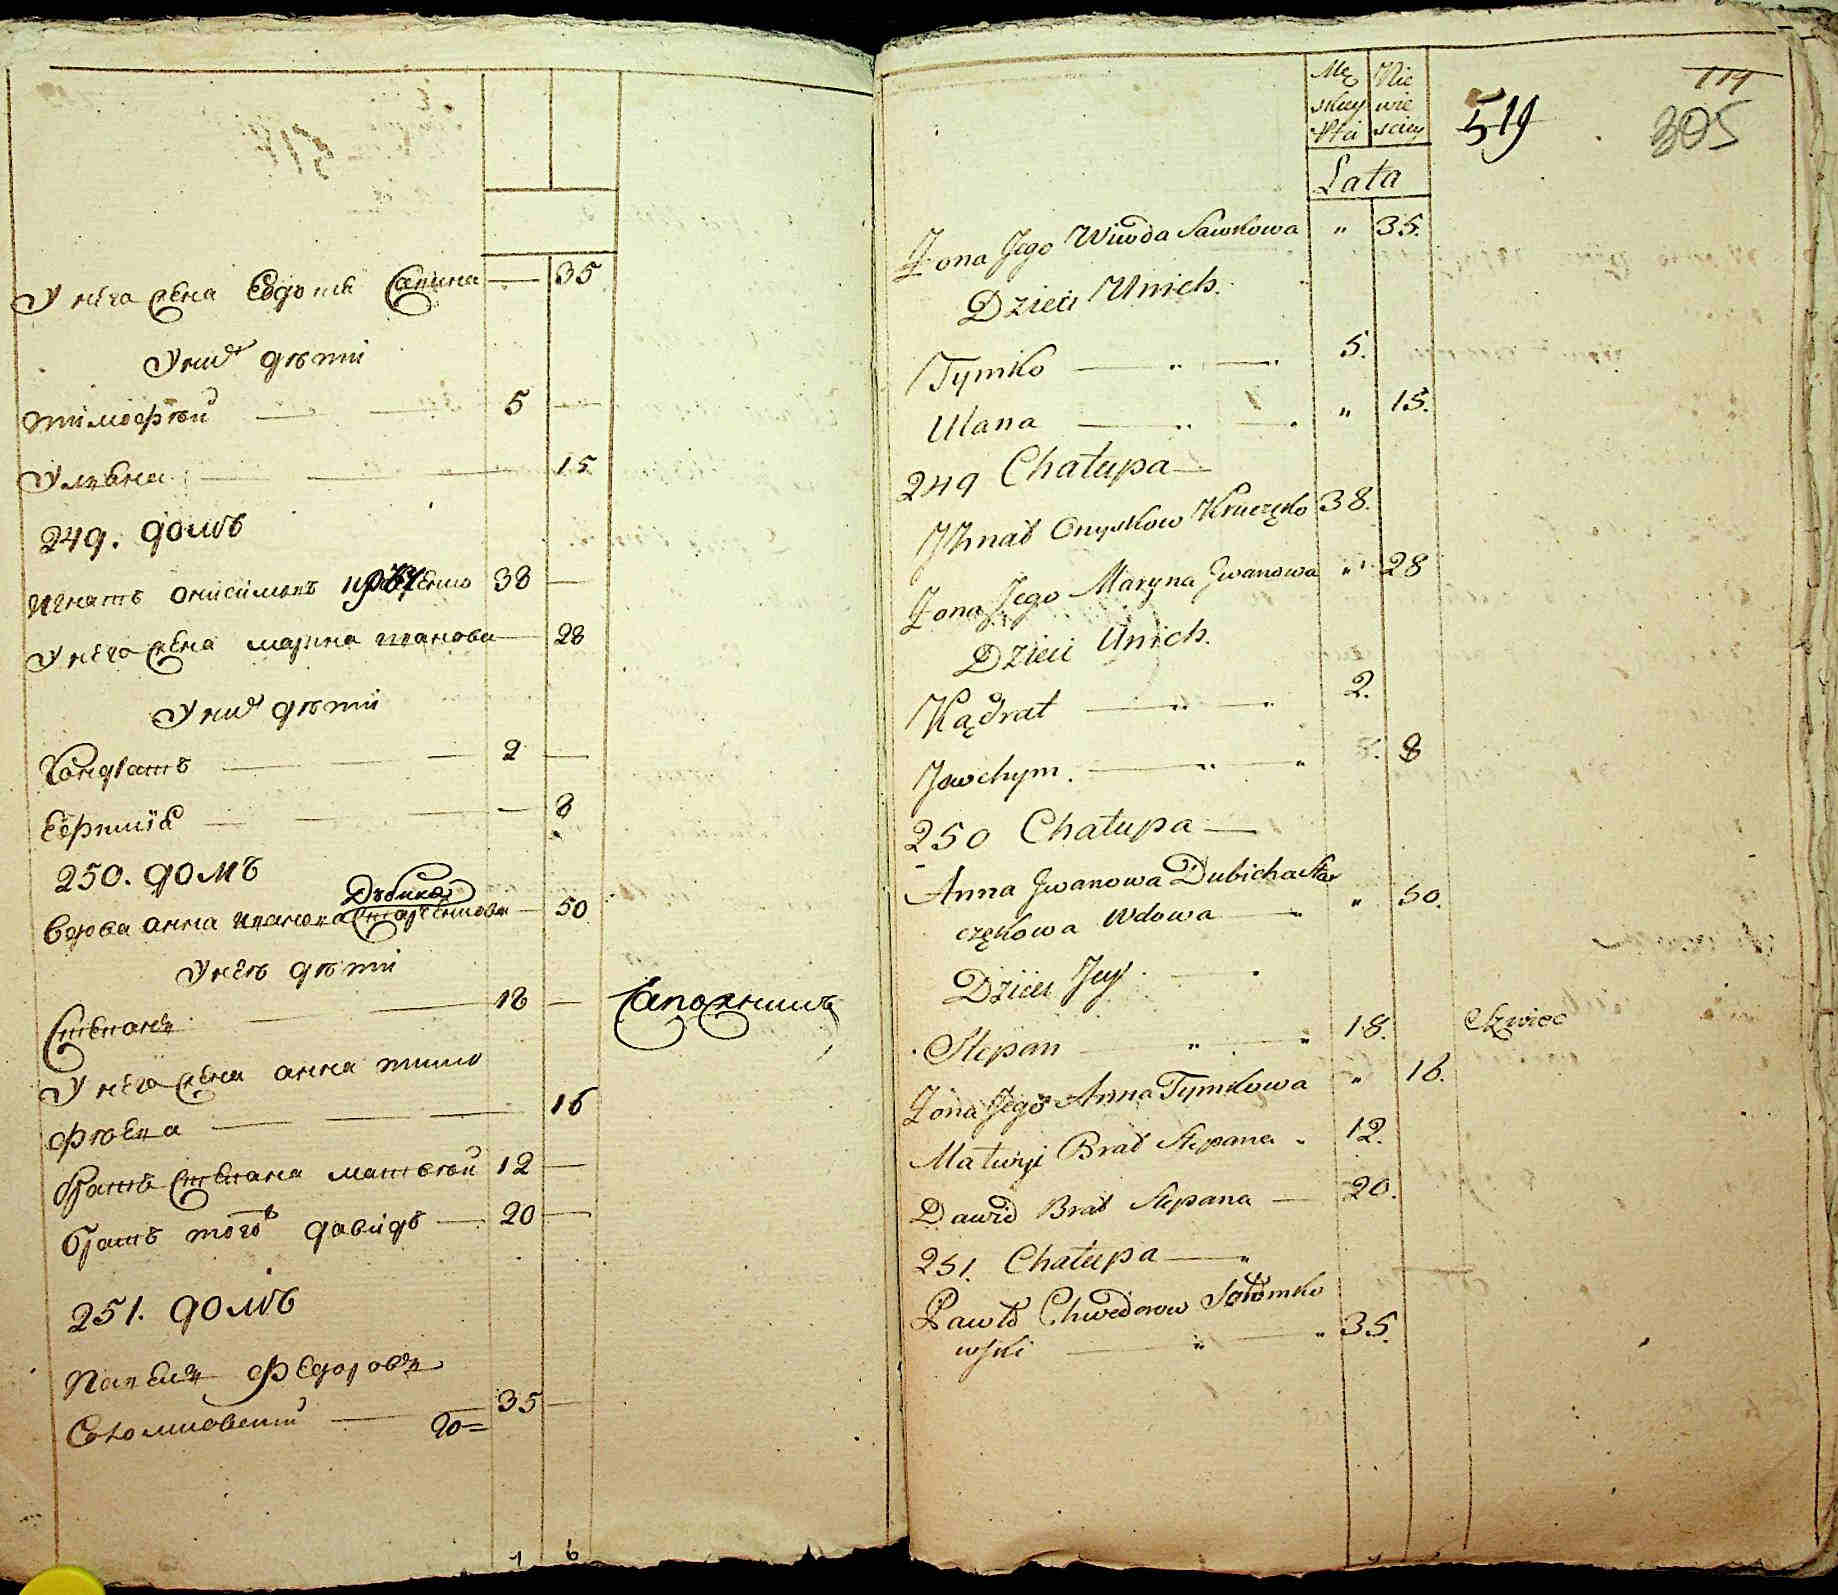 У нѣго жена Евдотя Савина — 35
У них дѣти
Тимофѣй — 5 —
Уляна — 15
249. домъ
Игнатъ Онисимовъ 38 —
У нѣго жена Марина Иванова — 28
У них дѣти
Кондратъ — 2 —
Ефимия — 8
250. домъ
Вдова Анна Иванова — 50
У нѣе дѣти
Степанъ — 18 — Сапожникъ
У нѣго жена Анна Тимо
фѣева — 16
братъ Степана Матвѣй 12 —
братъ того ж Давидъ — 20 —
251. домъ
Павелъ Федоровъ
Соломковский — 35 —
Mę Nie
skiey wie
Płci sciey
Lata
519
119
305
Żona Jego Wiwda Sawkowa " 35.
Dzieci Unich.
Tymko — " — 5.
Ulana — " — " 15.
249 Chałupa —
Ihnat Onyskow Kruczęko 38.
Żona Jego Maryna Jwanowa " 28
Dzieci Unich.
Kądrat — " — 2.
Jewchym. — " " 8
250 Chałupa —
Anna Jwanowa Dubicha Star
czękowa Wdowa — " 50.
Dzieci Jey
Stepan — " " 18. Szwiec
Żona Jego Anna Tymkowa " 16.
Matwiy Brat Stepana 12.
Dawid Brat Stepana — 20.
251. Chałupa — "
Pawło Chwedorow Sołomko
wski — " — " 35.